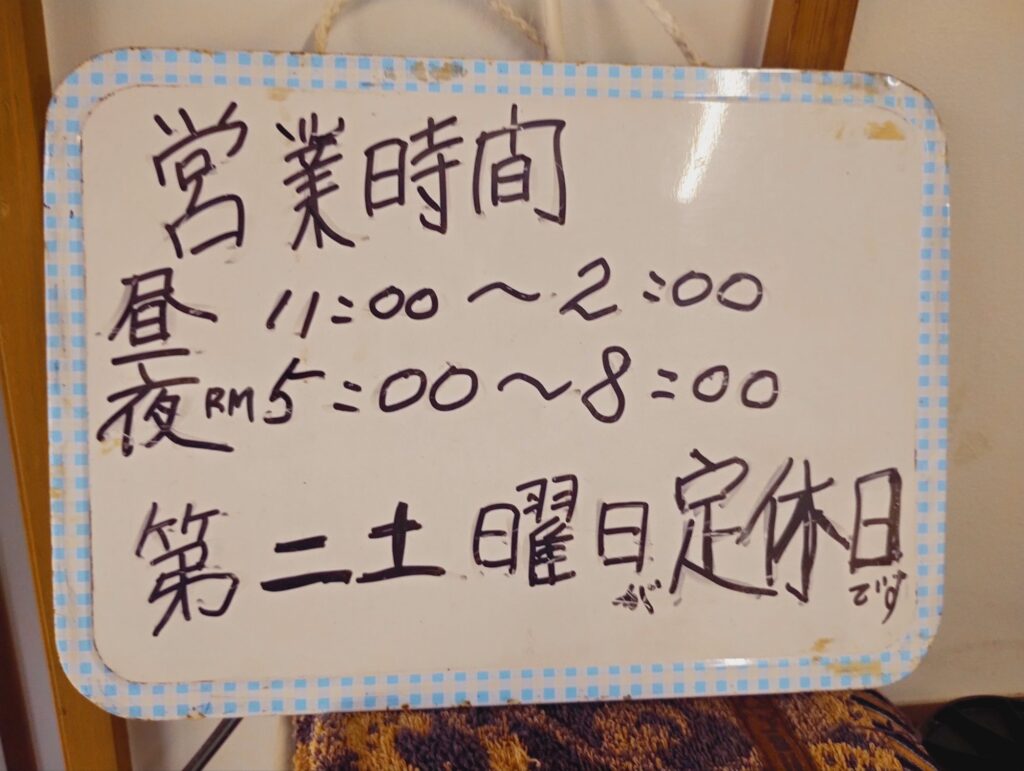 営業時間
昼 11:00～2:00
夜 RM5:00～8:00
第二土曜日が定休日です